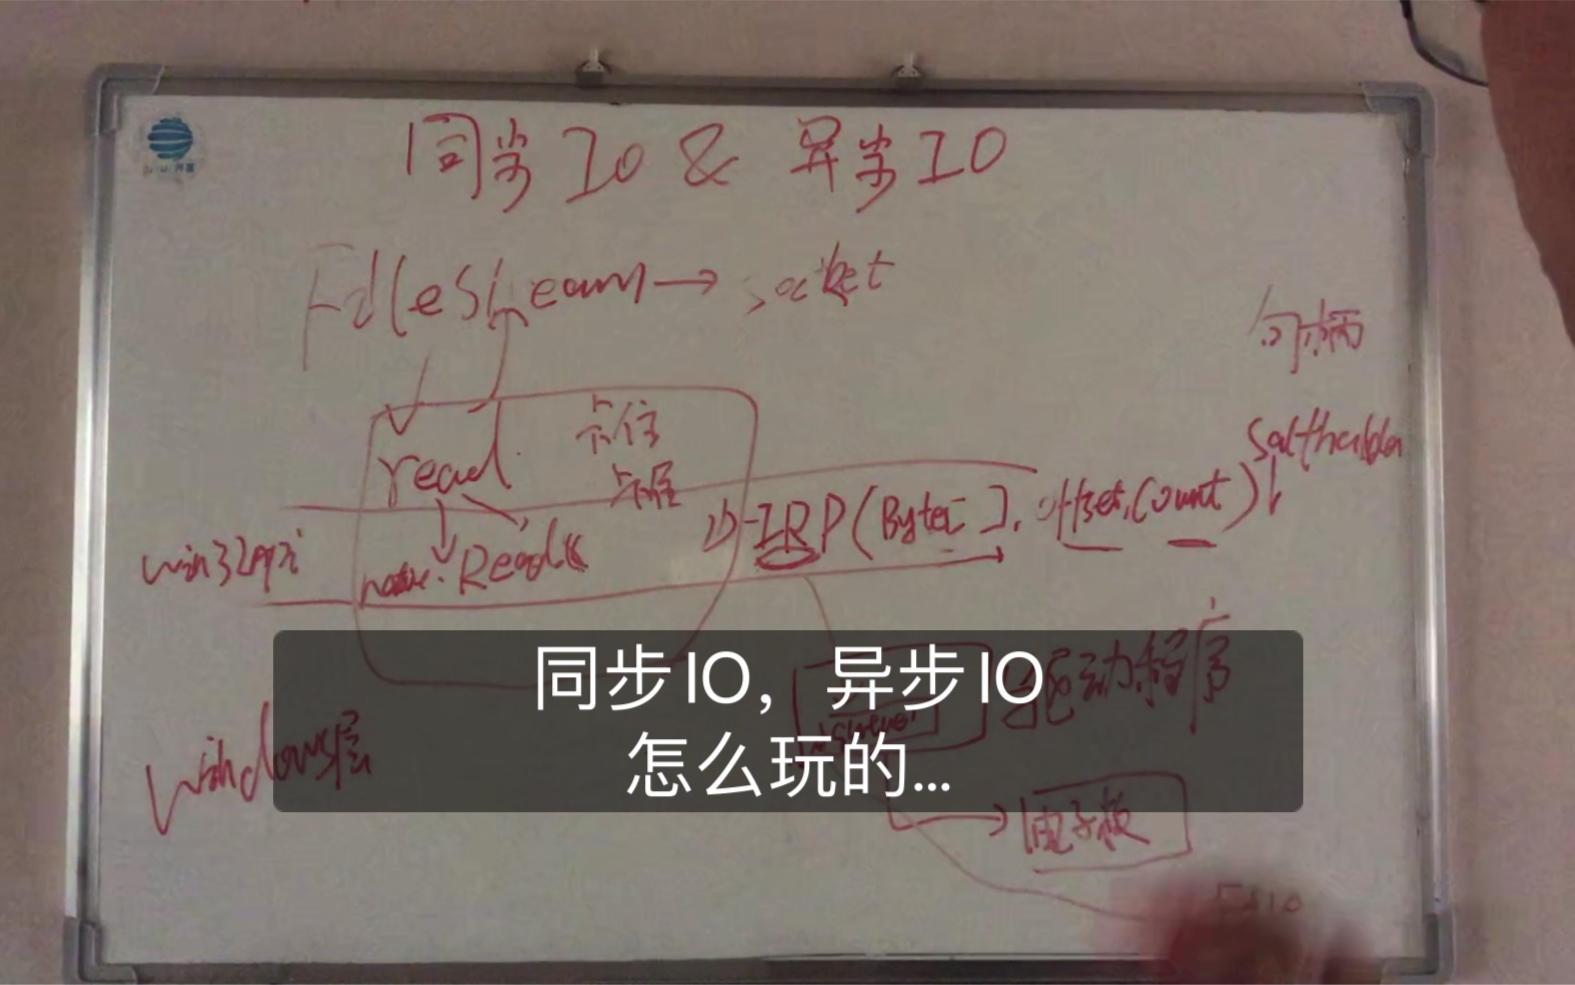 同步IO & 异步IO
FileStream → socket
句柄
read
卡住
SafeHandle
1) IRP(Byte[], offset, Count)
win32api
native.Read
驱动程序
windows层
电子板
同步IO，异步IO
怎么玩的...